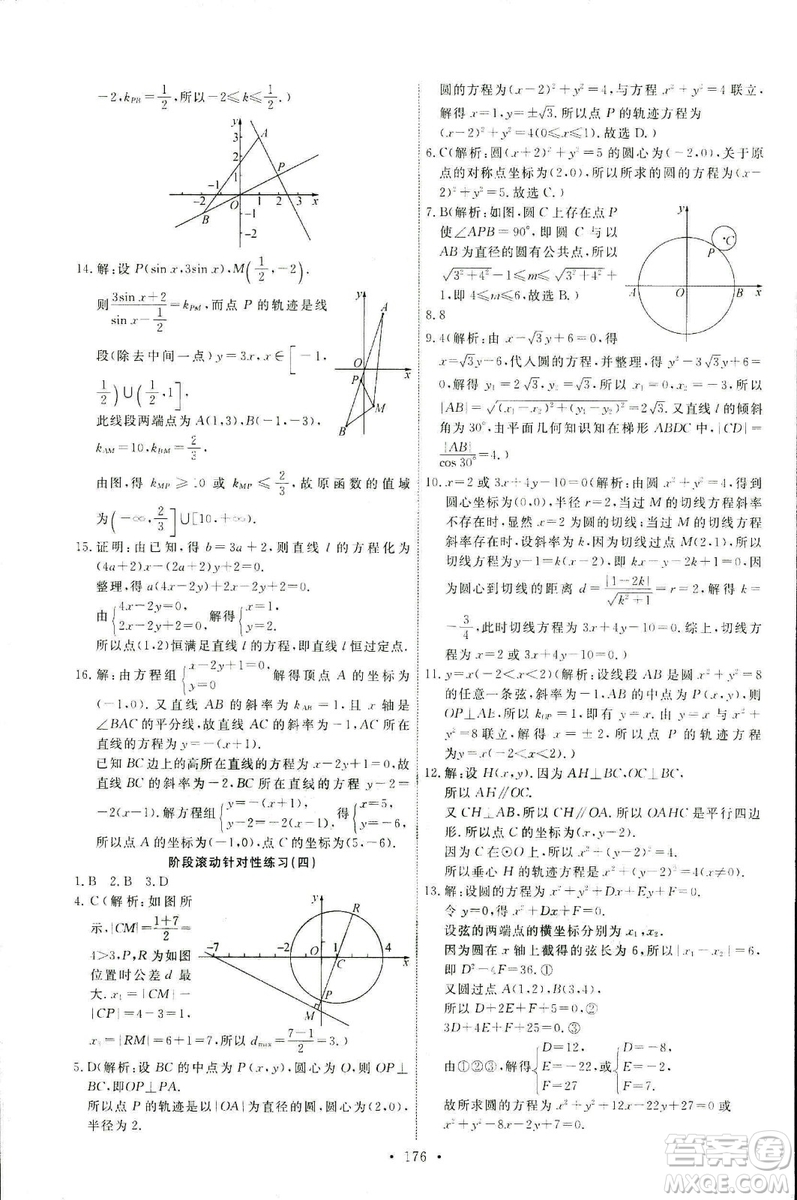 -2,k_{PB}=1/2,所以-2≤k≤1/2.)
y
3
2
1
A
P
-2 -1 O 1 2 3 x
B
-1
-2
14.解:设 P(sin x,3sin x),M(1/2,-2).
则(3sin x+2)/(sin x-1/2)=k_{PM},而点 P 的轨迹是线
段(除去中间一点)y=3x,x∈[-1,
1/2)∪(1/2,1],
y
A
O
P
x
M
B
此线段两端点为 A(1,3),B(-1,-3).
k_{AM}=10,k_{BM}=2/3.
由图,得 k_{MP}≥10 或 k_{MP}≤2/3,故原函数的值域
为(-∞,2/3]∪[10,+∞).
15.证明:由已知,得 b=3a+2,则直线 l 的方程化为
(4a+2)x-2(a+1)y+2=0.
整理,得 a(4x-2y)+2x-2y+2=0.
由{4x-2y=0,2x-2y+2=0,解得{x=1,y=2.
所以点(1,2)恒满足直线 l 的方程,即直线 l 恒过定点.
16.解:由方程组{x-2y+1=0,y=0,解得顶点 A 的坐标为
(-1,0).又直线 AB 的斜率为 k_{AB}=1,且 x 轴是
∠BAC 的平分线,故直线 AC 的斜率为-1,所以 AC
的直线的方程为 y=-(x+1).
已知 BC 边上的高所在直线的方程为 x-2y+1=0,
故直线 BC 的斜率为-2,BC 的直线的方程为 y-2=
-2(x-1).解方程组{y=-(x+1),y-2=-2(x-1),得{x=5,y=-6.
所以点 A 的坐标为(-1,0),点 C 的坐标为(5,-6).
阶段滚动针对性练习(四)
1.B 2.B 3.D
4.C(解析:作图如图所
示,|CM|=(1+7)/2=
4>3,P,R 为如图
位置时公差 d 最
大.x₁=|PM|=
|CP|=4-3=1,
y
R
2
-7 -1 O 1 C 4 x
P
M
x₃=|RM|=6+1=7,所以 d_{max}=(7-1)/2=3.)
5.D(解析:设 BC 的中点为 P(x,y),圆心为 O,则 OP⊥
BC,即OP⊥PA.
所以点 P 的轨迹是以|OA|为直径的圆,圆心为(2,0),
半径为 2.
圆的方程为(x-2)²+y²=4,与方程 x²+y²=4 联立,
解得 x=1,y=±√3.所以点 P 的轨迹方程为
(x-2)²+y²=4(0≤x≤1).故选 D.)
6.C(解析:圆(x+2)²+y²=5 的圆心为(-2,0),关于原
点的对称点坐标为(2,0),所以所求的圆的方程为(x-
2)²+y²=5.故选 C.)
7.B(解析:如图,圆 C 上存在点 P
使∠APB=90°,即圆 C 与以
AB 为直径的圆有公共点,所以
√(3²+4²)-1≤m≤√(3²+4²)+1,
即 4≤m≤6.故选 B.)
y
C
P
A O B x
8.8
9.4(解析:由 x-√3y+6=0,得
x=√3y-6,代入圆的方程,并整理,得 y²-3√3y+6=0,
解得 y₁=2√3,y₂=√3,所以 x₁=0,x₂=-3.所以
|AB|=√((x₁-x₂)²+(y₁-y₂)²)=2√3.又直线 l 的倾斜
角为 30°,由平面几何知识知在梯形 ABDC 中,|CD|=
|AB|/cos 30°=4.)
10.x=2 或 3x+4y-10=0(解析:由圆 x²+y²=4,得到
圆心坐标为(0,0),半径 r=2,当过 M 的切线方程斜率
不存在时,显然 x=2 为圆的切线;当过 M 的切线方程
斜率存在时,设斜率为 k,由切点 M(2,1),所以
切线方程为 y-1=k(x-2),即 kx-y+1-2k=0.
因为圆心到切线的距离 d=|1-2k|/√(k²+1)=r=2,解得 k=
-3/4,此时切线方程为 3x+4y-10=0.综上,切线方
程为 x=2 或 3x+4y-10=0.)
11.y=x(-2<x<2)(解析:设线段 AB 是圆 x²+y²=8
的任意一条弦,斜率为-1,AB 的中点为 P(x,y),则
OP⊥AB,所以 k_{OP}=1.所以直线 OP 的方程为 y=x,
与圆的方程联立,解得 x=±2,所以点 P 的轨迹方程
为 y=x(-2<x<2).)
12.解:设 H(x,y),因为 AH⊥BC,OC⊥BC,
所以 AH∥OC.
又 CH⊥AB,所以 CH∥OA.所以 OAHC 是平行四边
形.所以点 C 的坐标为(x,y-2).
因为点 C 在⊙O 上,所以 x²+(y-2)²=4.
所以垂心 H 的轨迹方程为 x²+(y-2)²=4(x≠0).
13.解:设圆的方程为 x²+y²+Dx+Ey+F=0.
令 y=0,得 x²+Dx+F=0.
设弦的两端点的横坐标分别为 x₁,x₂.
因为圆在 x 轴上截得的弦长为 6,所以|x₁-x₂|=6,
即 D²-4F=36.①
又圆过点 A(1,2),B(3,4),
所以 D+2E+F+5=0,②
3D+4E+F+25=0.③
由①②③,得{D=12,E=-22,F=27 或{D=-8,E=-2,F=7.
故所求圆的方程为 x²+y²+12x-22y+27=0 或
x²+y²-8x-2y+7=0.
· 176 ·
答案圈
MXQE.COM